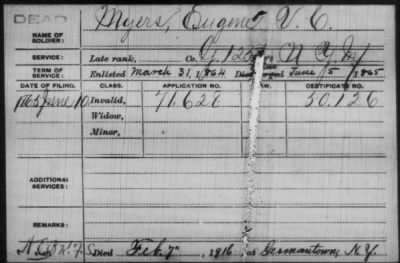 DEAD
NAME OF SOLDIER: Myers, Eugene V. C.
SERVICE: Late rank, Co. G, 125 N. Y. Inf
TERM OF SERVICE: Enlisted March 31, 1864 June 5, 1865
DATE OF FILING. CLASS. APPLICATION NO. LAW. CERTIFICATE NO.
1865 June 10 Invalid, 71.628 50.126
Widow,
Minor,
ADDITIONAL SERVICES:
REMARKS:
Died Feb. 7", 1916, at Germantown, N.Y.